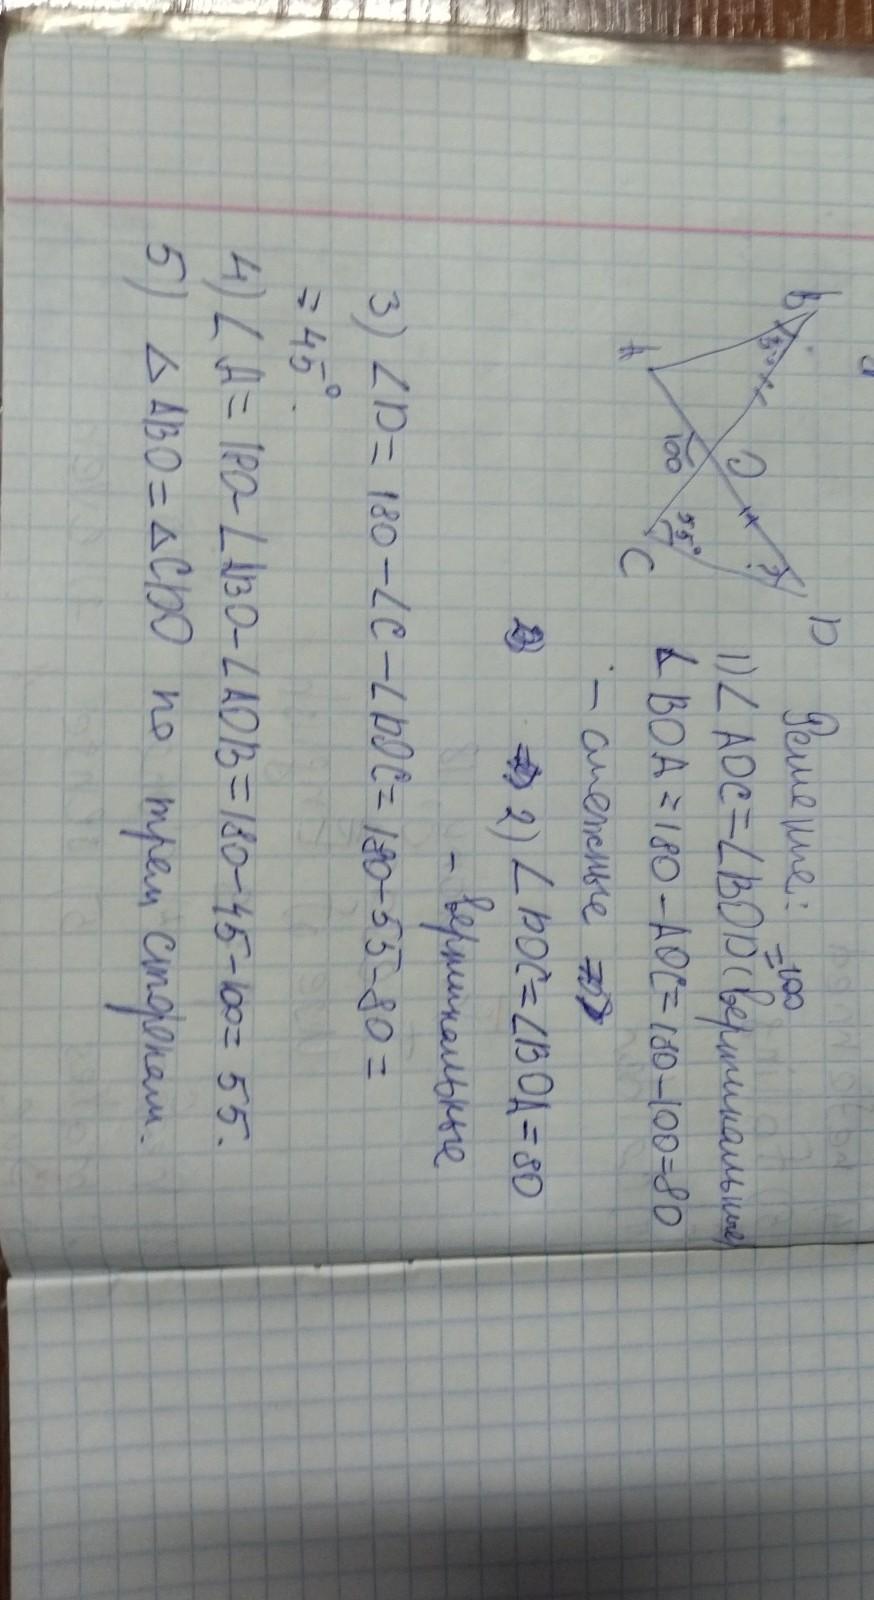 B
A
O
100
55°
C
D
Решение:
=100
1) ∠AOC=∠BOD(вертикальные)
∠BOA=180-AOC=180-100=80
- смежные ⇒
2) ∠DOC=∠BOA=80
- вертикальные
3) ∠D= 180-∠C-∠DOC= 180-55-80=
=45°.
4) ∠A= 180-∠ABO-∠AOB=180-45-100= 55.
5) △ABO=△CDO по трем сторонам.